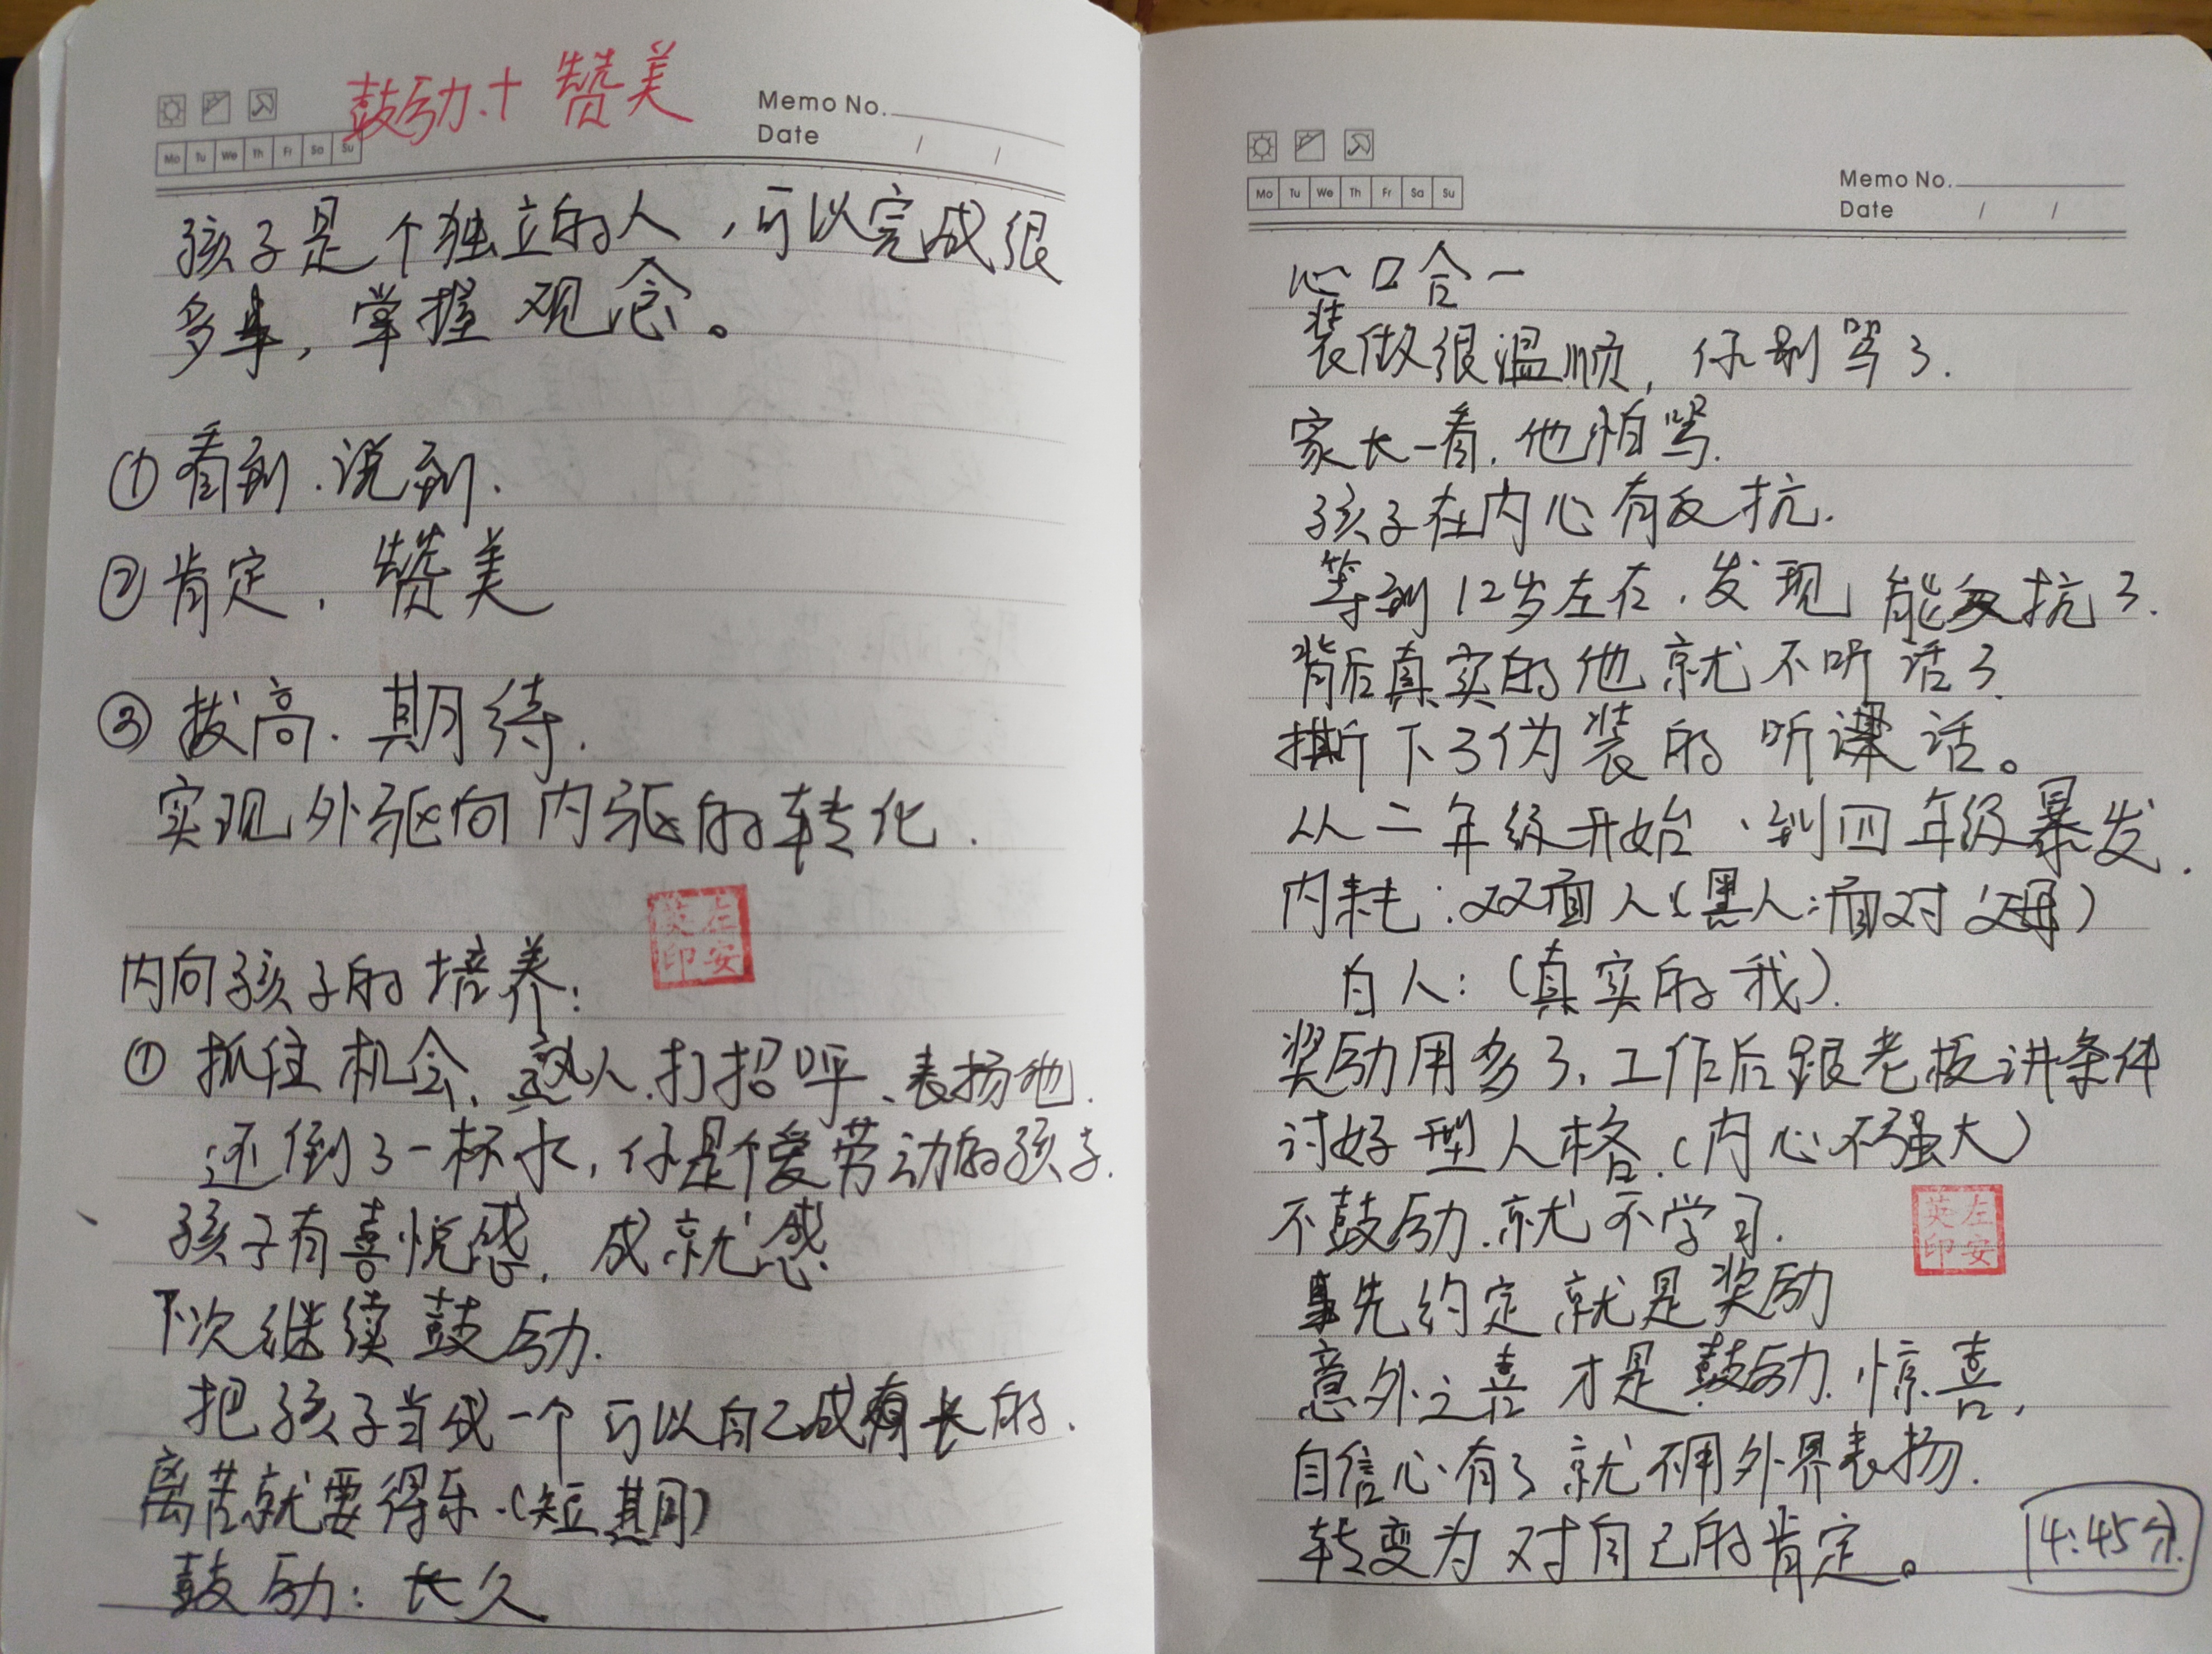 鼓励.+赞美
Memo No.
Date / /
Mo Tu We Th Fr Sa Su
孩子是个独立的人，可以完成很
多事，掌握观念。
①看到.说到.
②肯定，赞美
③拔高.期待.
实现外驱向内驱的转化.
英左
印安
内向孩子的培养：
①抓住机会、熟人打招呼、表扬他.
还倒了一杯水，你是个爱劳动的孩子.
孩子有喜悦感，成就感.
下次继续鼓励.
把孩子当成一个可以自己成长的.
离苦就要得乐.（短期）
鼓励：长久
Memo No.
Date / /
Mo Tu We Th Fr Sa Su
心口合一
装做很温顺，你别骂了.
家长一看.他怕骂.
孩子在内心有反抗.
等到12岁左右.发现能反抗了.
背后真实的他就不听话了.
撕下了伪装的听话。
从二年级开始、到四年级暴发.
内耗：双面人（黑人：面对父母）
白人：（真实的我）.
奖励用多了、工作后跟老板讲条件
讨好型人格.（内心不强大）
不鼓励.就不学习.
英左
印安
事先约定就是奖励
意外之喜才是鼓励.惊喜，
自信心有了就不用外界表扬.
转变为对自己的肯定。
4:45分.